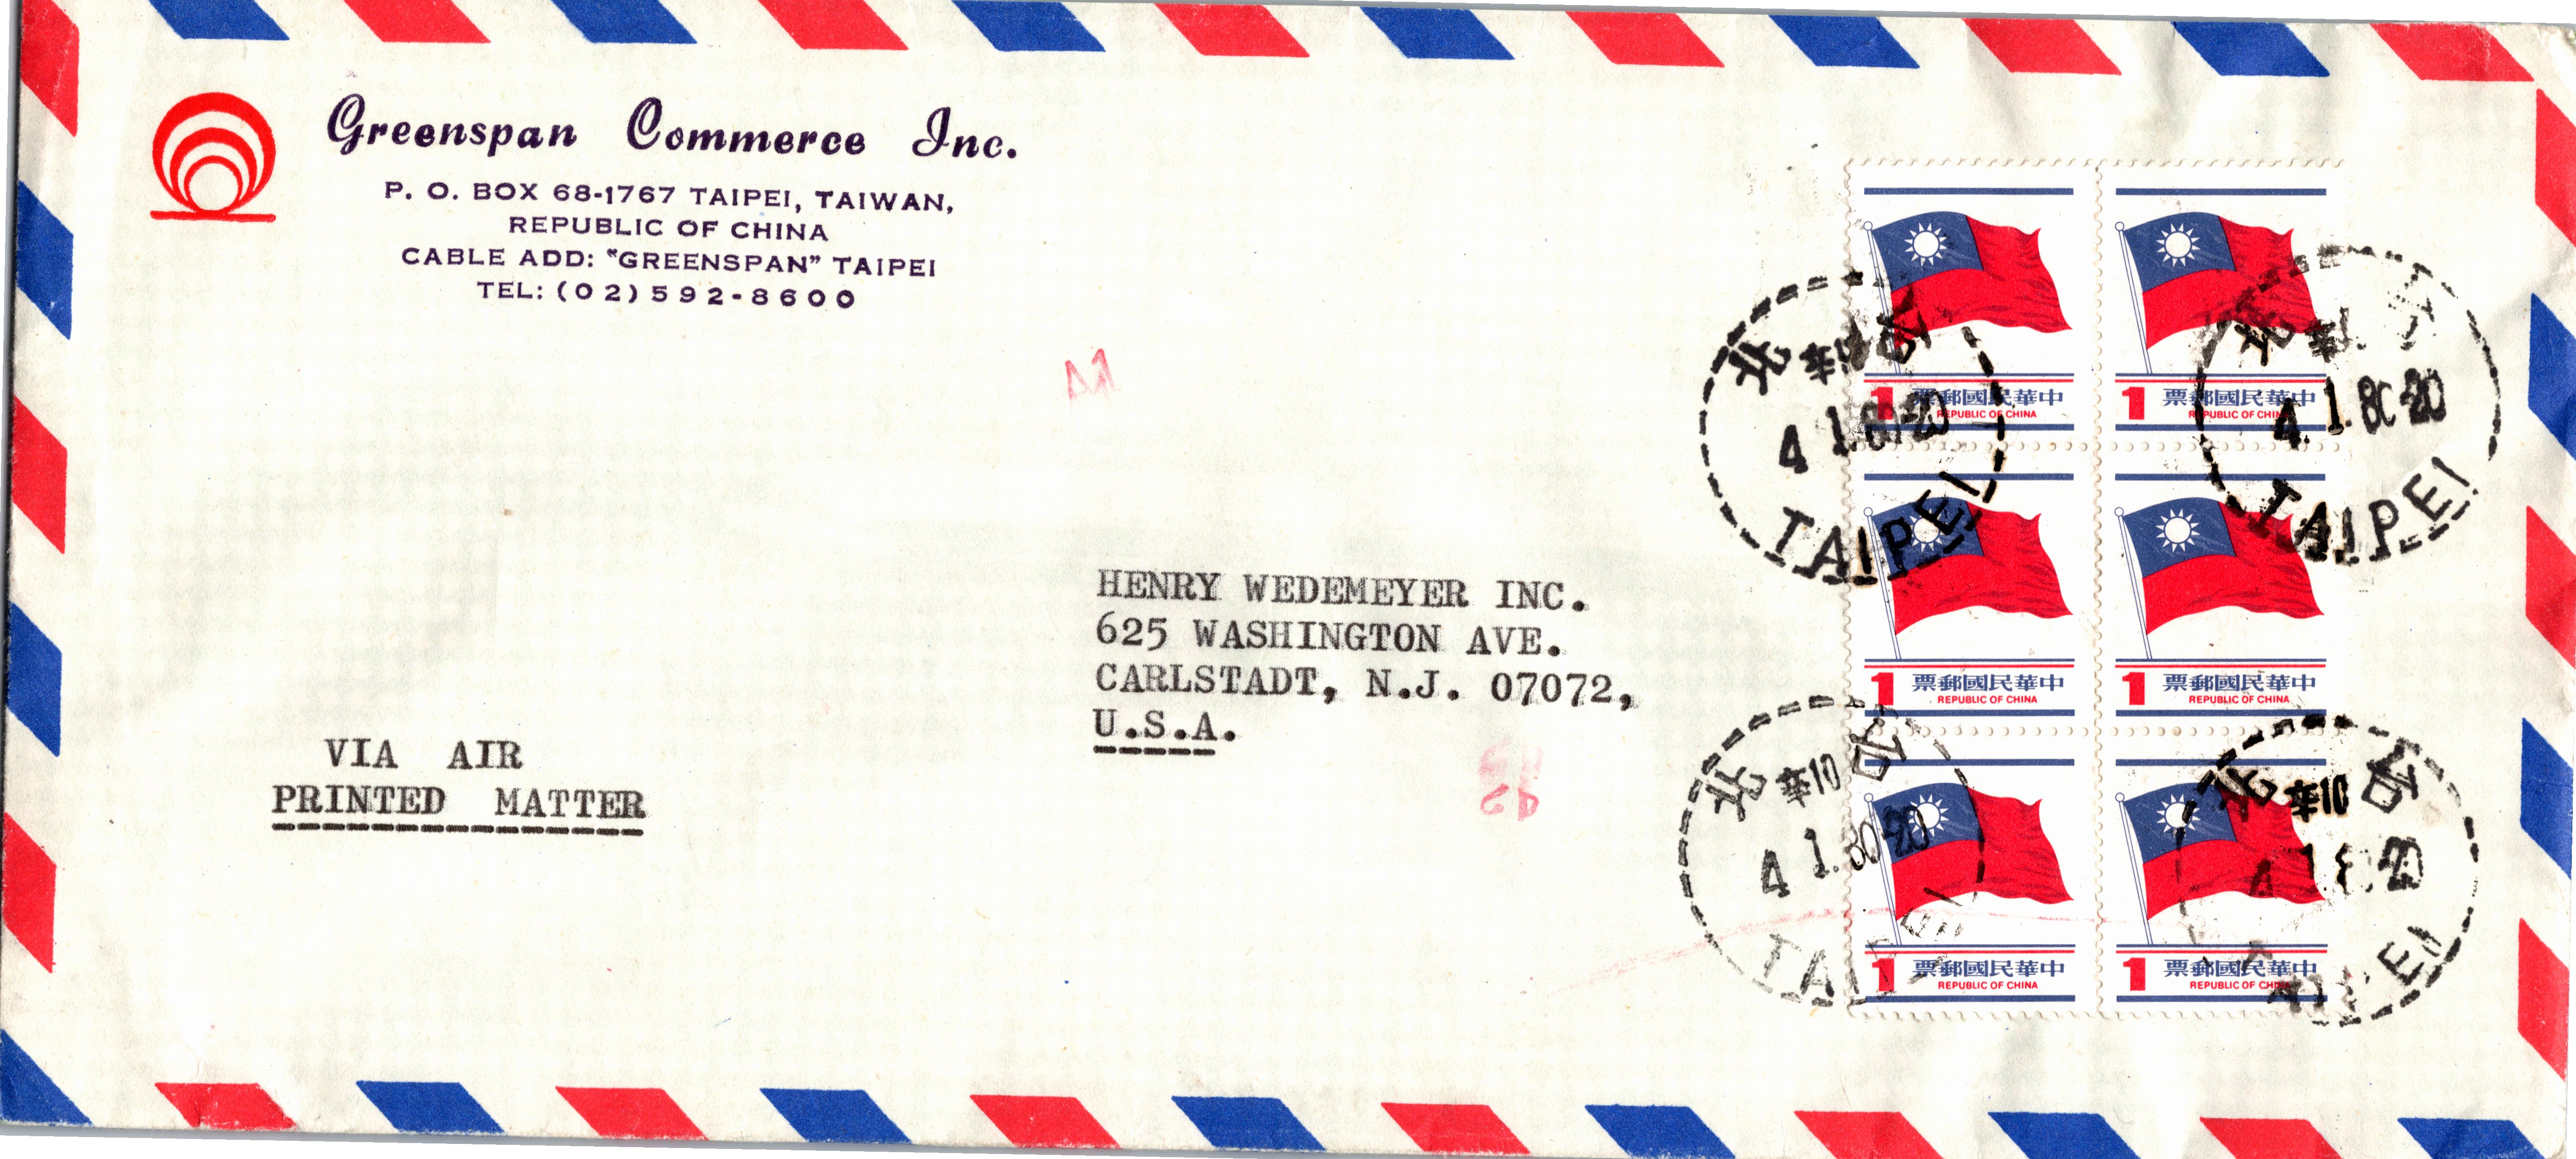 Greenspan Commerce Inc.
P. O. BOX 68-1767 TAIPEI, TAIWAN,
REPUBLIC OF CHINA
CABLE ADD: "GREENSPAN" TAIPEI
TEL: (02) 592-8600
A1
HENRY WEDEMEYER INC.
625 WASHINGTON AVE.
CARLSTADT, N.J. 07072,
U.S.A.
VIA AIR
PRINTED MATTER
1 票郵國民華中
REPUBLIC OF CHINA
1 票郵國民華中
REPUBLIC OF CHINA
1 票郵國民華中
REPUBLIC OF CHINA
1 票郵國民華中
REPUBLIC OF CHINA
1 票郵國民華中
REPUBLIC OF CHINA
1 票郵國民華中
REPUBLIC OF CHINA
北
4 1.80-20
TAIPEI
北
4.1.80-20
TAIPEI
北 台
10
4 1.80-20
TAI
北 台
10
4 1